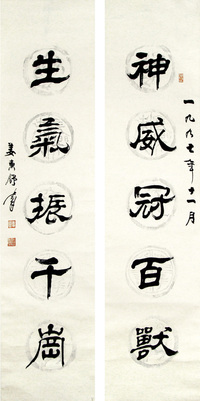 神威冠百獸
一九九七年十一月
生氣振千嵓
姜東舒書